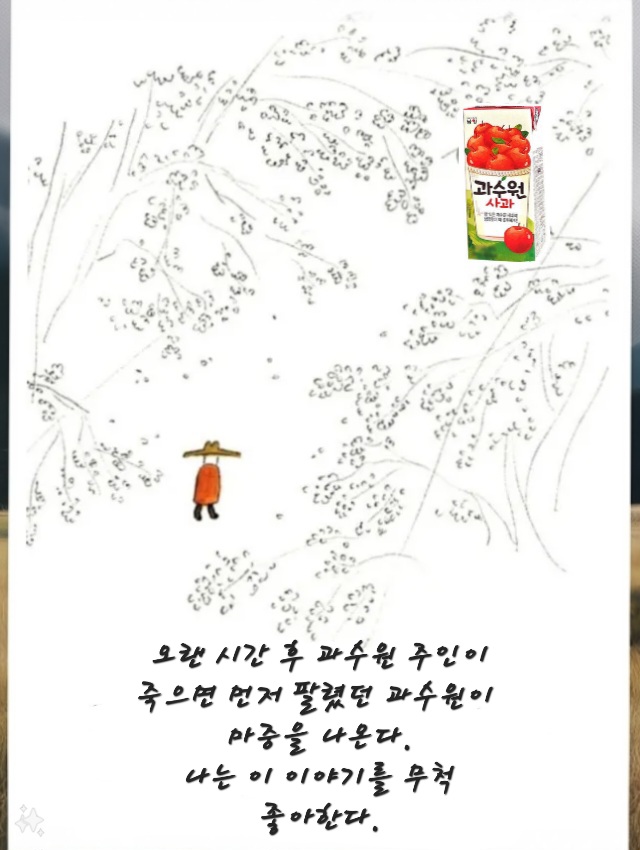 과수원
사과
오랜 시간 후 과수원 주인이
죽으면 먼저 팔렸던 과수원이
마중을 나온다.
나는 이 이야기를 무척
좋아한다.